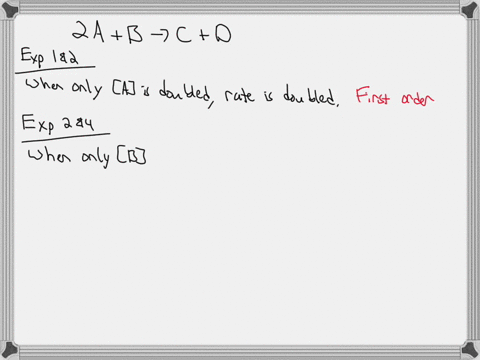 2A + B → C + D
Exp 1&2
When only [A] is doubled, rate is doubled. First order
Exp 2&4
When only [B]